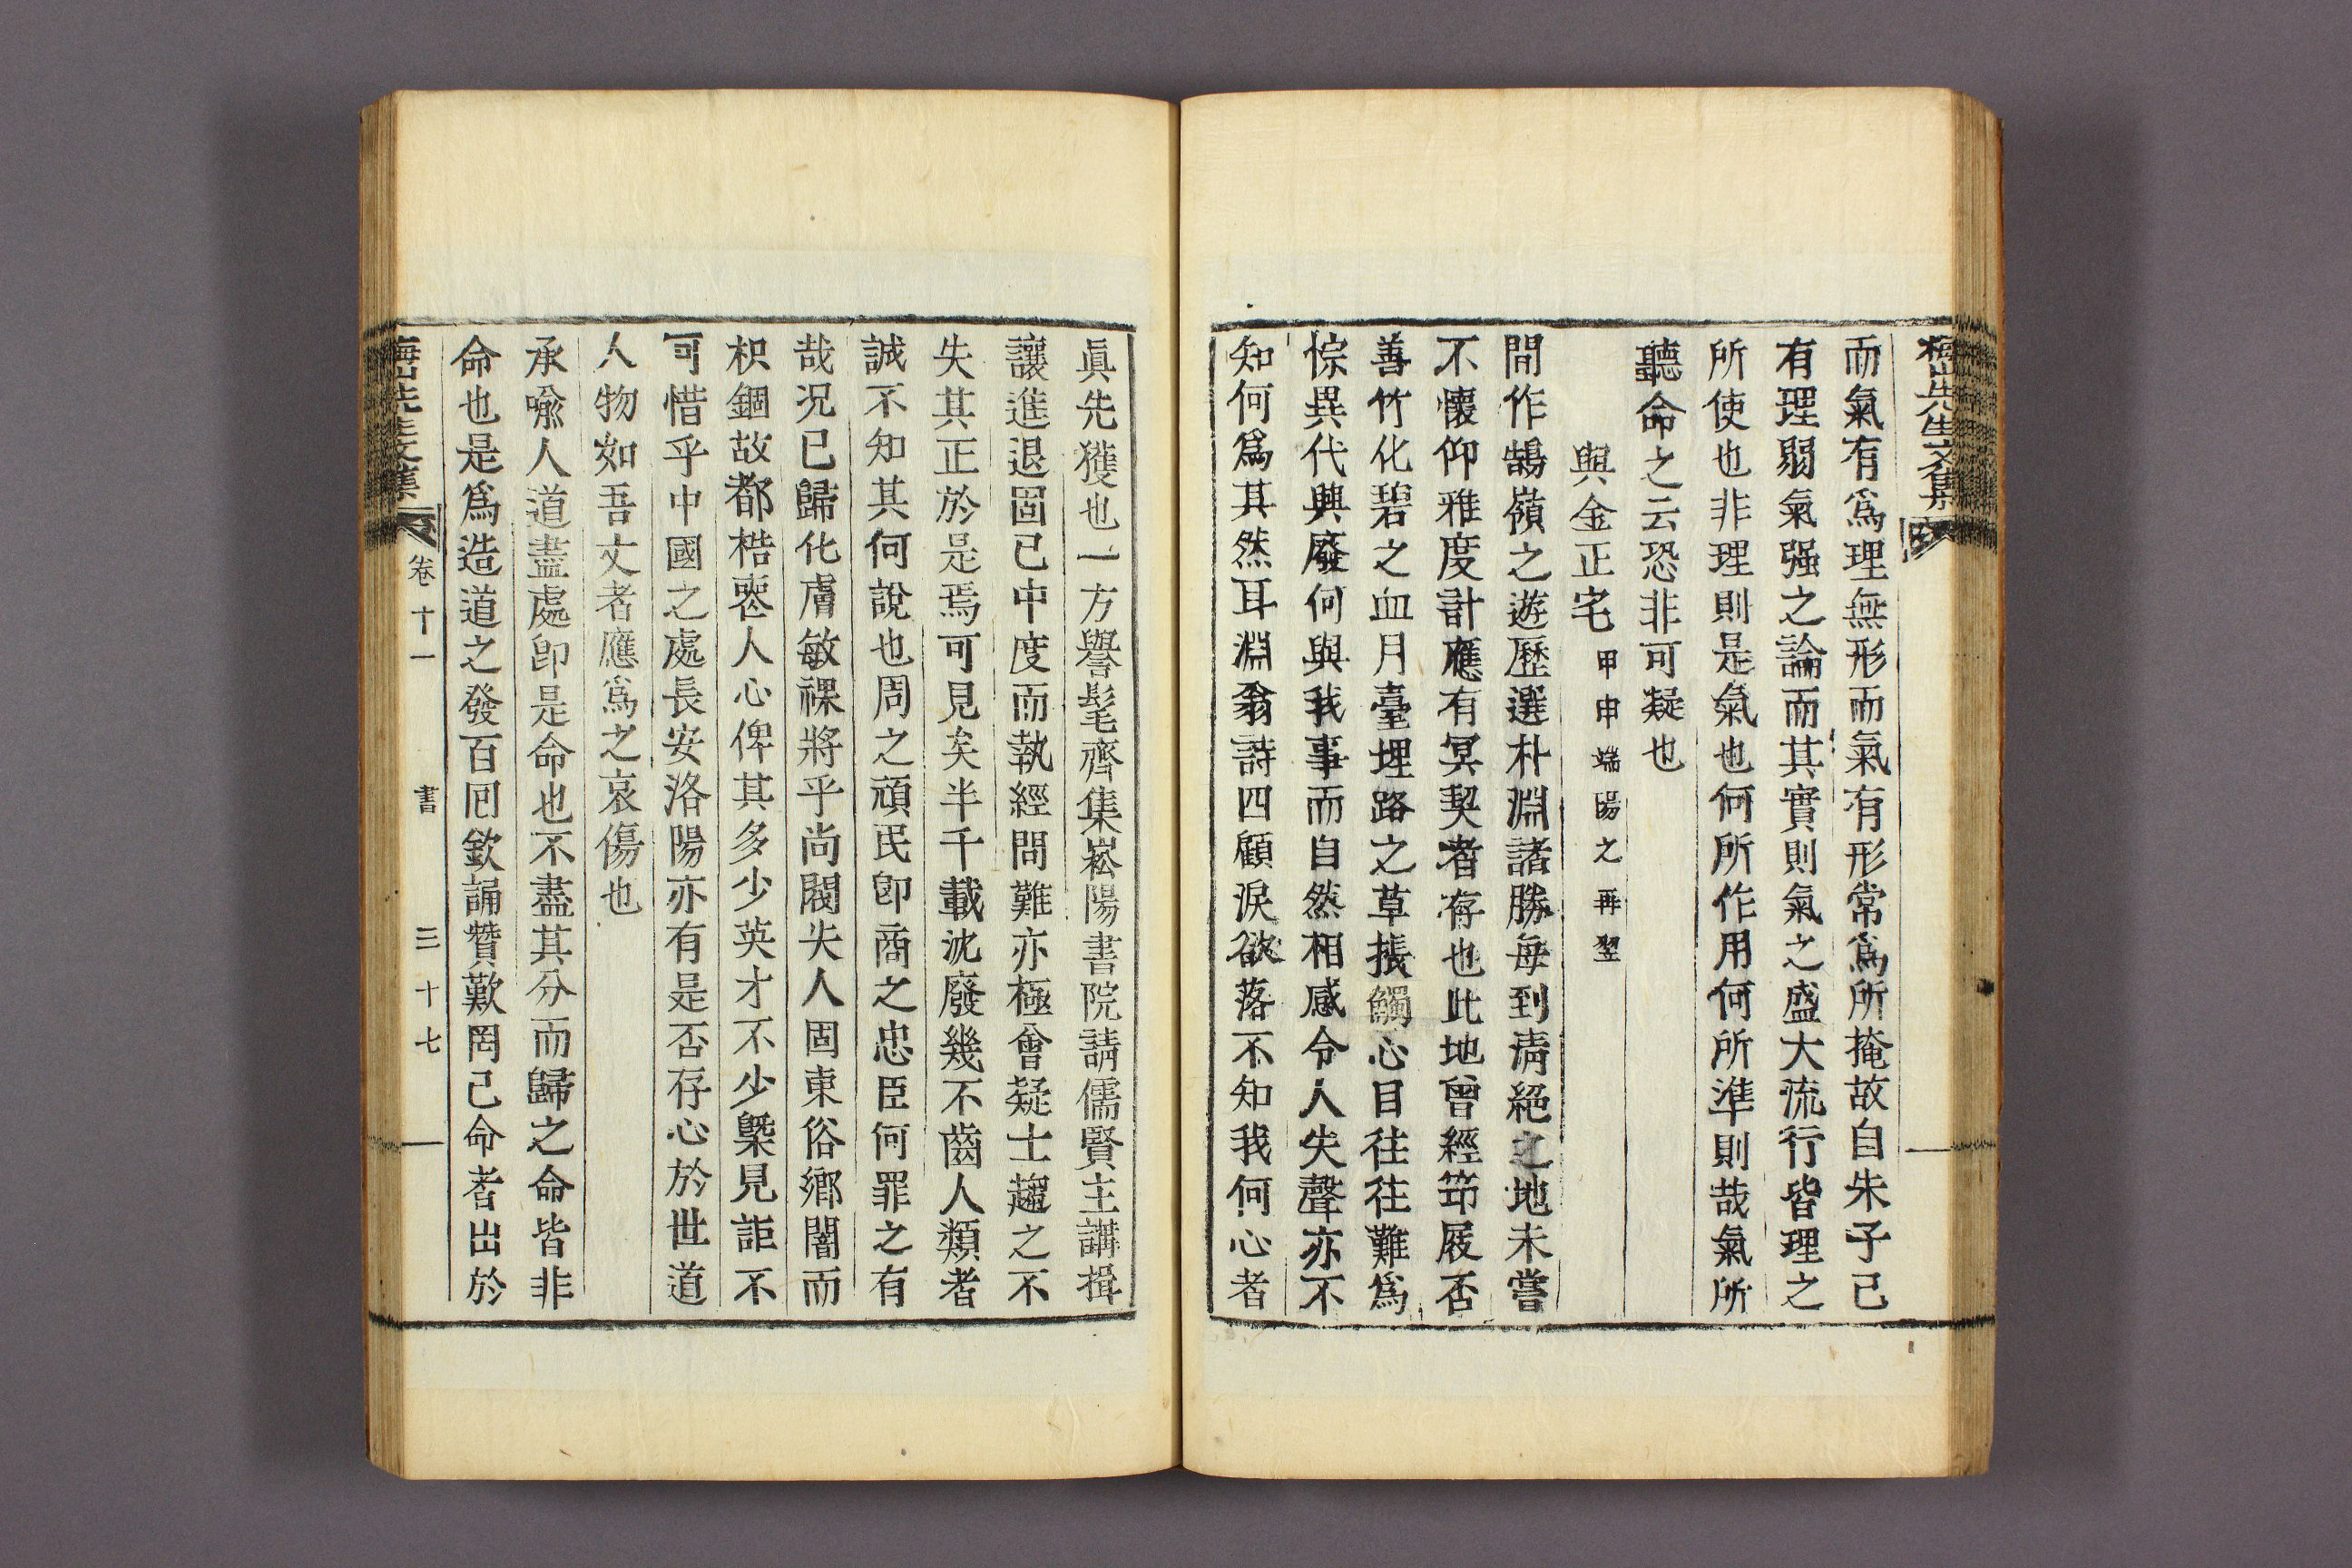 梅山先生文集
而氣有爲理無形而氣有形常爲所掩故自朱子已
有理弱氣强之論而其實則氣之盛大流行皆理之
所使也非理則是氣也何所作用何所準則哉氣所
聽命之云恐非可疑也
與金正宅 甲申端陽之再翌
間作鵠嶺之遊歷選朴淵諸勝每到淸絕之地未嘗
不懷仰雅度計應有冥契者存也此地曾經笻屐否
善竹化碧之血月臺埋路之草掁觸心目往往難爲
悰異代興廢何與我事而自然相感令人失聲亦不
知何爲其然耳淵翁詩四顧淚欲落不知我何心者
眞先獲也一方譽髦齊集崧陽書院請儒賢主講揖
讓進退固已中度而執經問難亦極會疑士趨之不
失其正於是焉可見矣半千載沈廢幾不齒人類者
誠不知其何說也周之頑民卽商之忠臣何罪之有
哉况已歸化膚敏祼將乎尚閥失人固東俗鄉闇而
枳錮故都梏喪人心俾其多少英才不少槩見詎不
可惜乎中國之處長安洛陽亦有是否存心於世道
人物如吾丈者應爲之哀傷也
承喩人道盡處卽是命也不盡其分而歸之命皆非
命也是爲造道之發百回欽誦贊歎罔已命者出於
梅山先生文集 卷十一 書 三十七